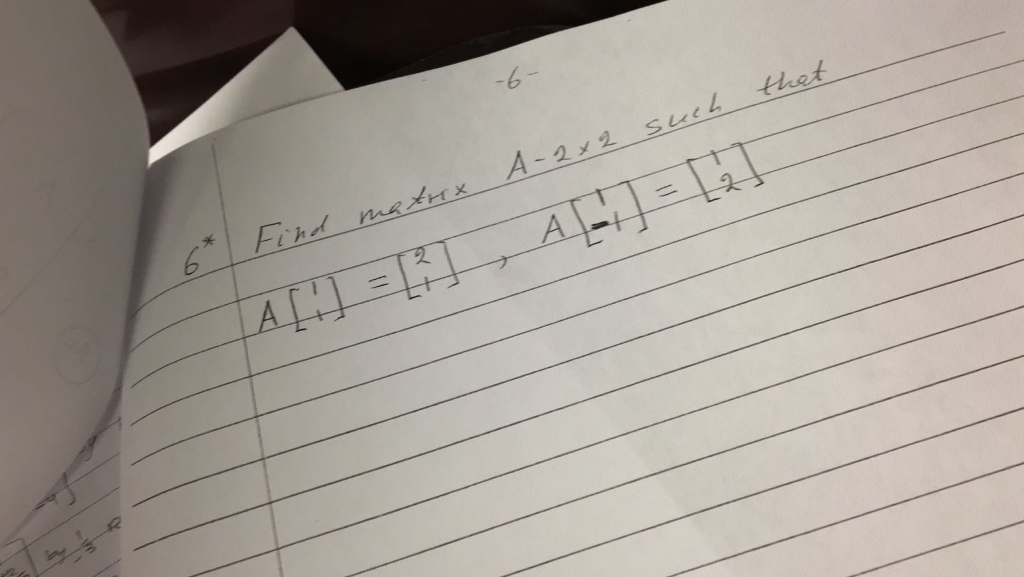 -6-
6* Find matrix A-2x2 such that
A[1 1] = [2 1], A[1 -1] = [1 2]
by 1/3